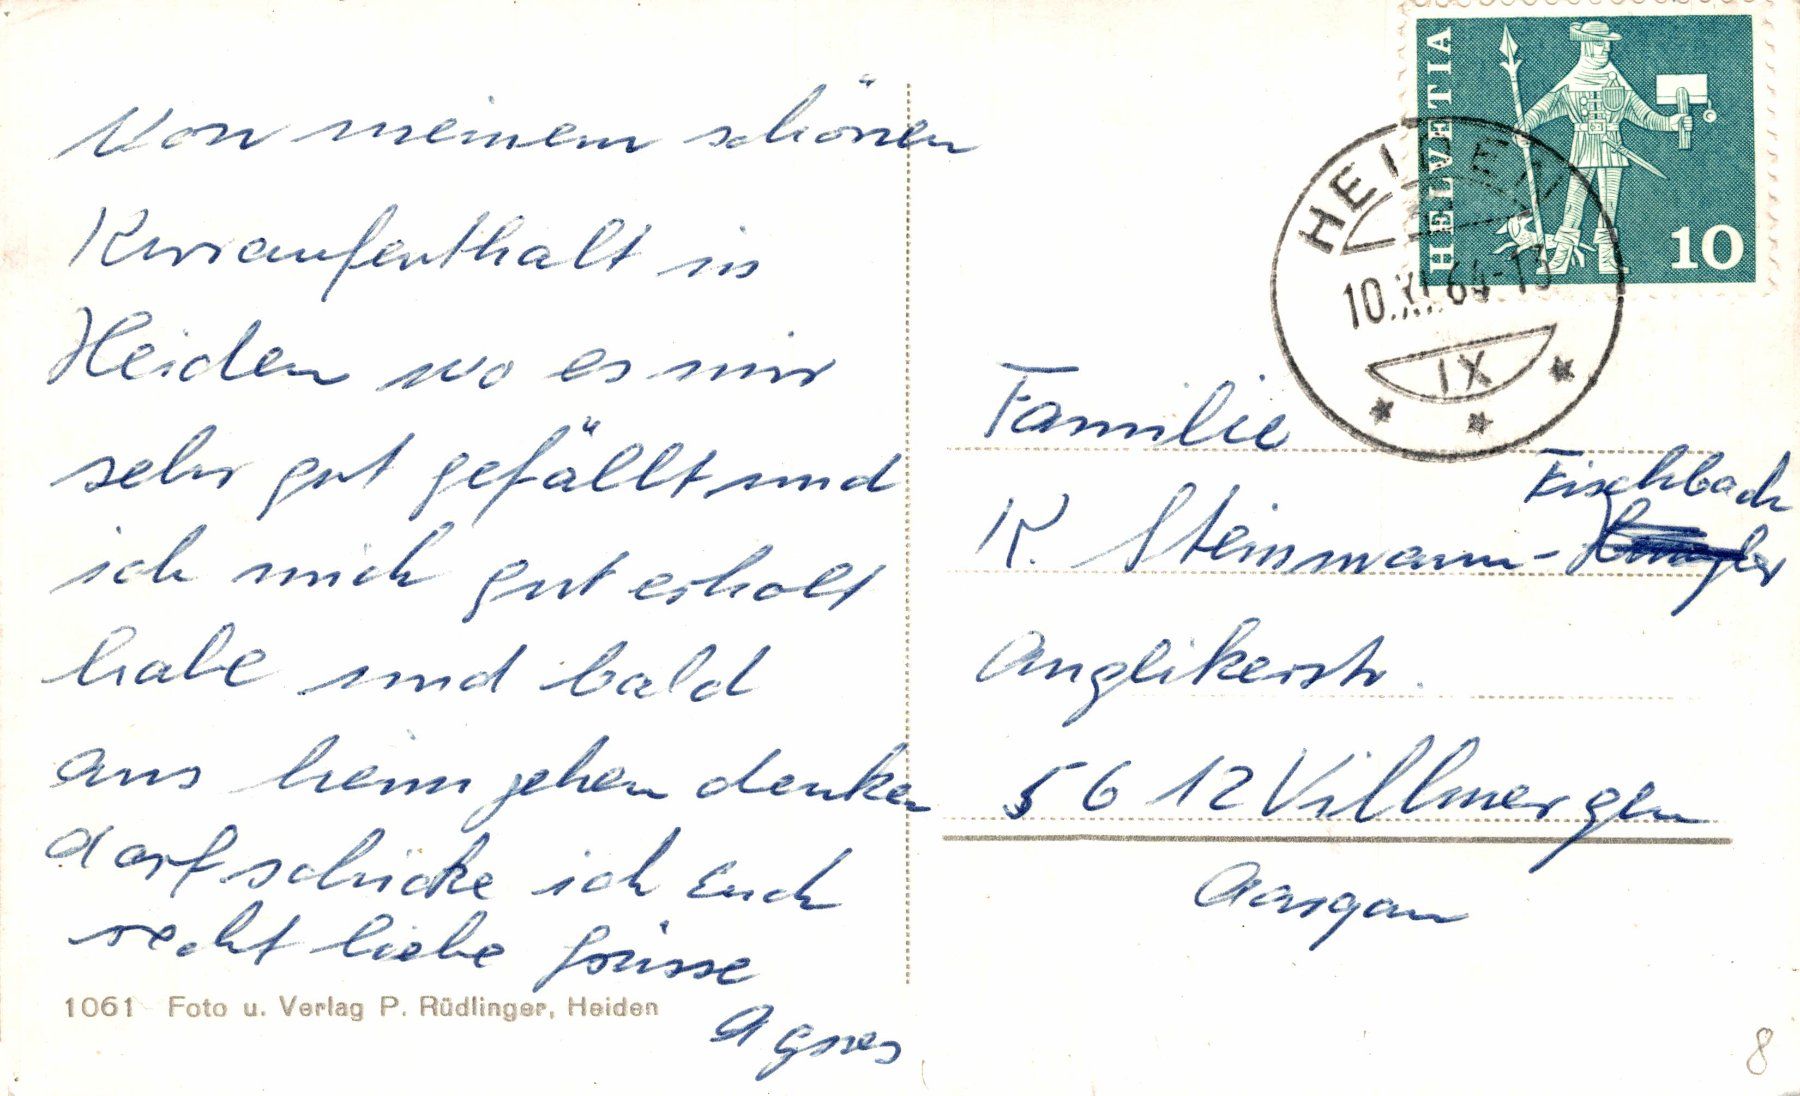 Von meinem schönen
Kuraufenthalt in
Heiden wo es mir
sehr gut gefällt und
ich mich gut erholt
habe und bald
ans heim gehen denken
darf schicke ich Euch
recht liebe grüsse
Agnes
1061 Foto u. Verlag P. Rüdlinger, Heiden
HELVETIA
10
HEIDEN
10.XI.64-13
IX
Familie
Fischbach
K. Steinmann-
Anglikerstr.
5612 Villmergen
Aargau
8